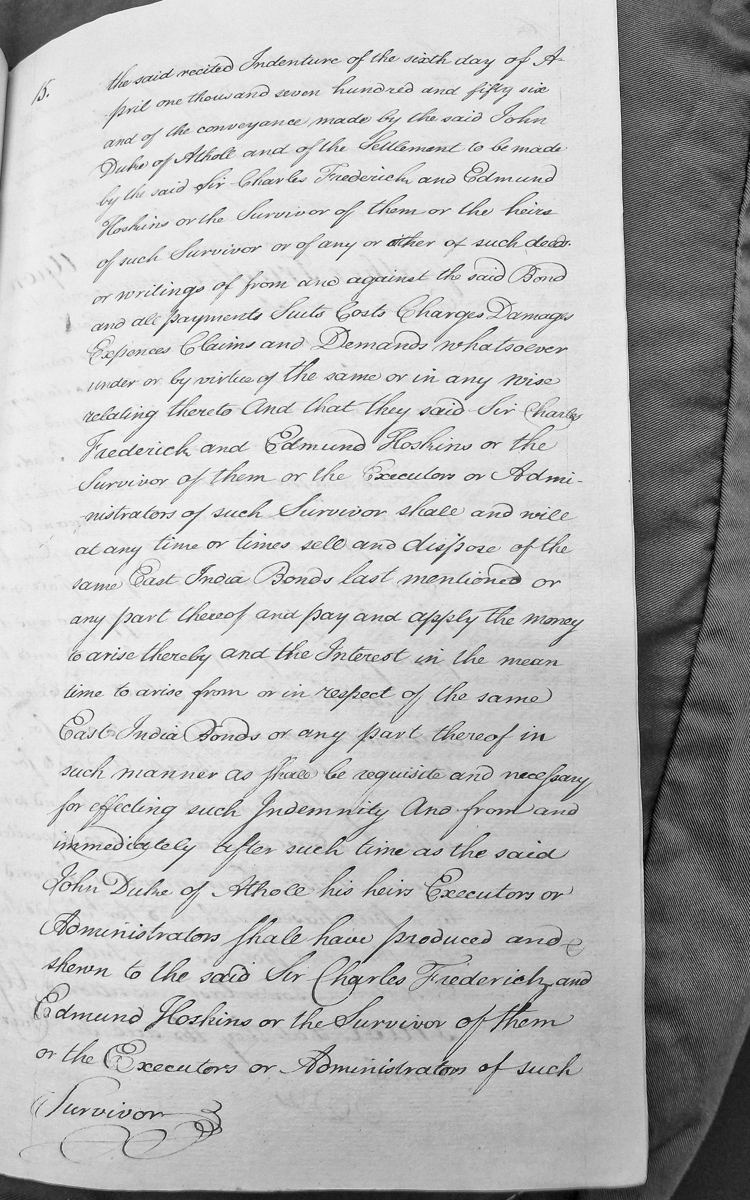 15.
the said recited Indenture of the sixth day of A-
pril one thousand seven hundred and fifty six
and of the conveyance made by the said John
Duke of Athole and of the Settlement to be made
by the said Sir Charles Frederick and Edmund
Hoskins or the Survivor of them or the heirs
of such Survivor or of any or other of such deeds
or writings of from and against the said Bond
and all payments Suits Costs Charges Damages
Expences Claims and Demands whatsoever
under or by virtue of the same or in any wise
relating thereto And that they said Sir Charles
Frederick and Edmund Hoskins or the
Survivor of them or the Executors or Admi-
-nistrators of such Survivor shall and will
at any time or times sell and dispose of the
same East India Bonds last mentioned or
any part thereof and pay and apply the money
to arise thereby and the Interest in the mean
time to arise from or in respect of the same
East India Bonds or any part thereof in
such manner as shall be requisite and necessary
for effecting such Indemnity And from and
immediately after such time as the said
John Duke of Athole his heirs Executors or
Administrators shall have produced and
shewn to the said Sir Charles Frederick and
Edmund Hoskins or the Survivor of them
or the Executors or Administrators of such
Survivor